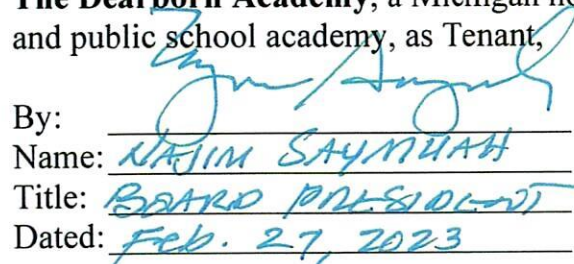 The Dearborn Academy, a Michigan no
and public school academy, as Tenant,
By:
Name: NAJIM SAYMUAH
Title: BOARD PRESIDENT
Dated: Feb. 27, 2023